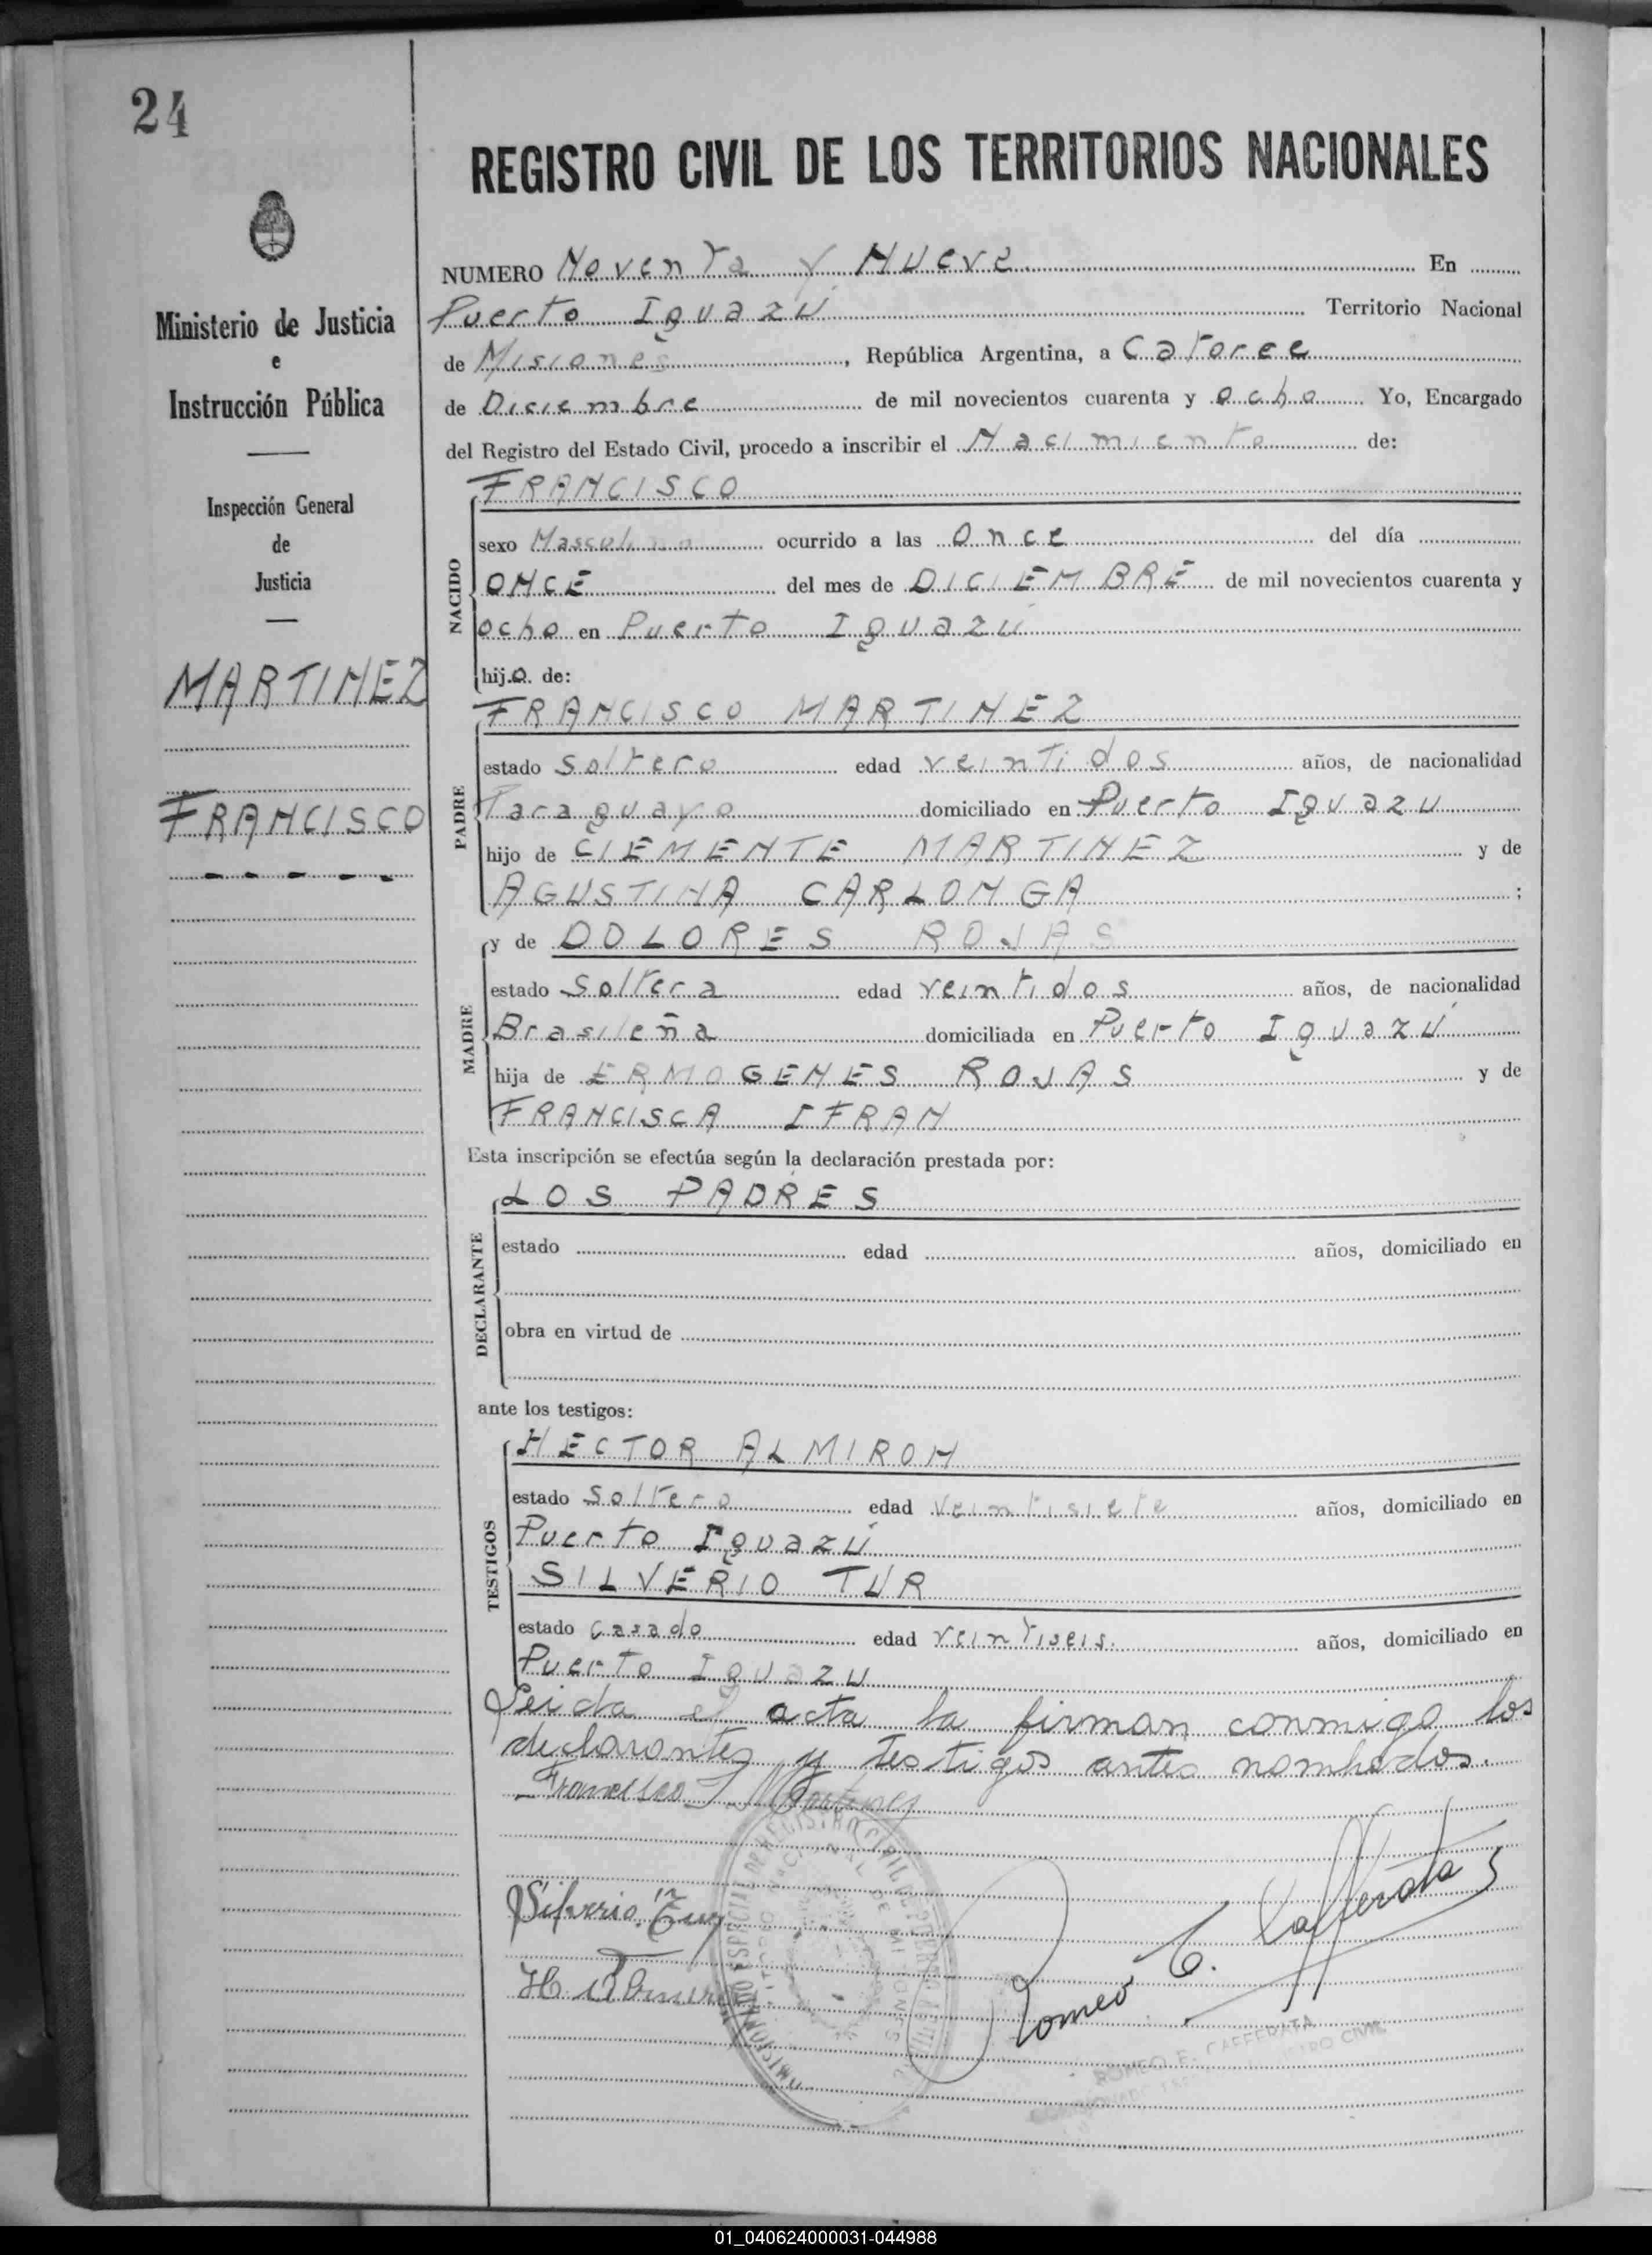 24
Ministerio de Justicia
e
Instrucción Pública
Inspección General
de
Justicia
MARTINEZ
FRANCISCO
REGISTRO CIVIL DE LOS TERRITORIOS NACIONALES
NUMERO Noventa y Nueve En
Puerto Iguazú Territorio Nacional
de Misiones, República Argentina, a Catorce
de Diciembre de mil novecientos cuarenta y ocho Yo, Encargado
del Registro del Estado Civil, procedo a inscribir el Nacimiento de:
NACIDO
FRANCISCO
sexo Masculino ocurrido a las Once del día
ONCE del mes de DICIEMBRE de mil novecientos cuarenta y
ocho en Puerto Iguazú
hijo de:
PADRE
FRANCISCO MARTINEZ
estado Soltero edad veintidos años, de nacionalidad
Paraguayo domiciliado en Puerto Iguazu
hijo de CLEMENTE MARTINEZ y de
AGUSTINA CARLONGA ;
MADRE
y de DOLORES ROJAS
estado Soltera edad veintidos años, de nacionalidad
Brasileña domiciliada en Puerto Iguazú
hija de ERMOGENES ROJAS y de
FRANCISCA IFRAN
Esta inscripción se efectúa según la declaración prestada por:
DECLARANTE
LOS PADRES
estado edad años, domiciliado en
obra en virtud de
ante los testigos:
TESTIGOS
HECTOR ALMIRON
estado Soltero edad Veintisiete años, domiciliado en
Puerto Iguazú
SILVERIO TUR
estado Casado edad Veintiseis. años, domiciliado en
Puerto Iguazu
Leida el acta la firman conmigo los
declarantes y testigos antes nombados.
Francisco Martinez
Silverio Tur
H Almiron
Romeo E. Cafferata
ROMEO E. CAFFERATA
01_040624000031-044988